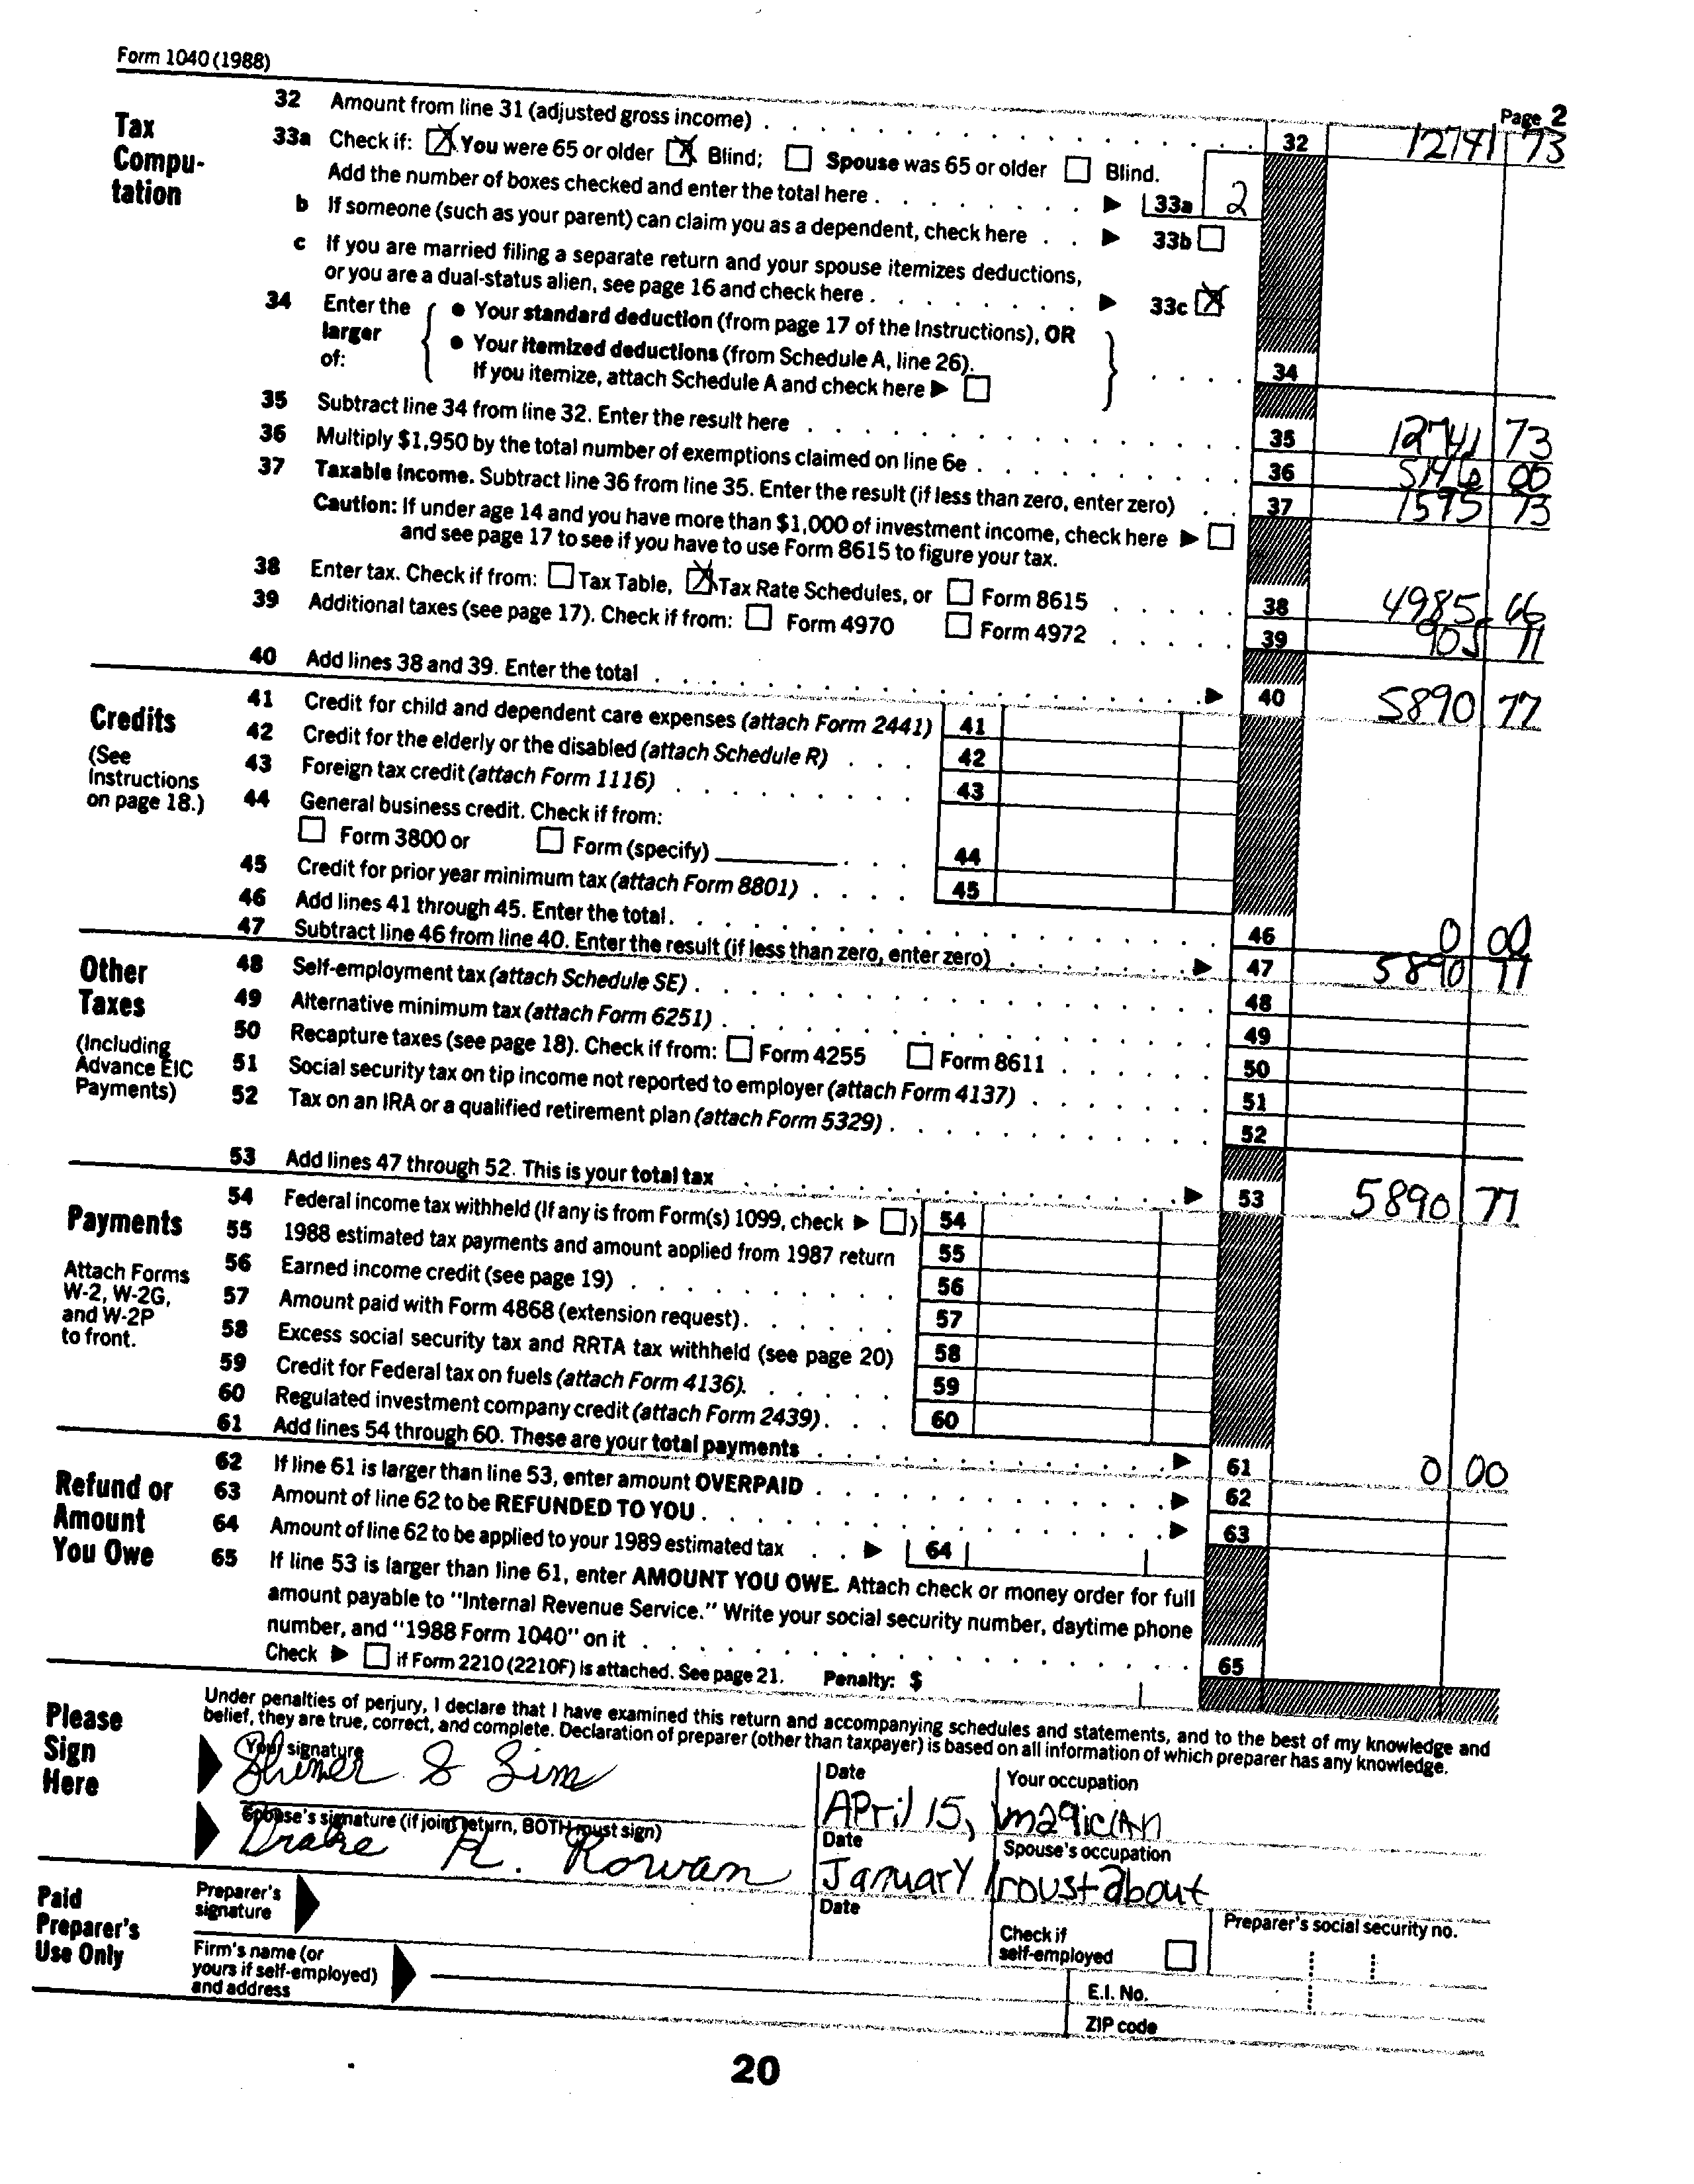 Form 1040 (1988)
Page 2
Tax Compu-tation
32 Amount from line 31 (adjusted gross income) . . . 32 12741 73
33a Check if: ☒ You were 65 or older ☒ Blind; ☐ Spouse was 65 or older ☐ Blind.
Add the number of boxes checked and enter the total here . . . ▶ 33a 2
b If someone (such as your parent) can claim you as a dependent, check here . . ▶ 33b ☐
c If you are married filing a separate return and your spouse itemizes deductions,
or you are a dual-status alien, see page 16 and check here . . . ▶ 33c ☒
34 Enter the larger of: { ● Your standard deduction (from page 17 of the Instructions), OR
● Your itemized deductions (from Schedule A, line 26).
If you itemize, attach Schedule A and check here ▶ ☐ } . . . . 34
35 Subtract line 34 from line 32. Enter the result here . . . 35 12741 73
36 Multiply $1,950 by the total number of exemptions claimed on line 6e . . . 36 5146 00
37 Taxable income. Subtract line 36 from line 35. Enter the result (if less than zero, enter zero) . . 37 1595 73
Caution: If under age 14 and you have more than $1,000 of investment income, check here ▶ ☐
and see page 17 to see if you have to use Form 8615 to figure your tax.
38 Enter tax. Check if from: ☐ Tax Table, ☒ Tax Rate Schedules, or ☐ Form 8615 . . . 38 4985 66
39 Additional taxes (see page 17). Check if from: ☐ Form 4970 ☐ Form 4972 . . . 39 905 11
40 Add lines 38 and 39. Enter the total . . . ▶ 40 5890 77
Credits
(See Instructions on page 18.)
41 Credit for child and dependent care expenses (attach Form 2441) 41
42 Credit for the elderly or the disabled (attach Schedule R) . . . 42
43 Foreign tax credit (attach Form 1116) . . . 43
44 General business credit. Check if from:
☐ Form 3800 or ☐ Form (specify) . . . 44
45 Credit for prior year minimum tax (attach Form 8801) . . . . 45
46 Add lines 41 through 45. Enter the total . . . 46 0 00
47 Subtract line 46 from line 40. Enter the result (if less than zero, enter zero) . . . ▶ 47 5890 77
Other Taxes
(Including Advance EIC Payments)
48 Self-employment tax (attach Schedule SE) . . . 48
49 Alternative minimum tax (attach Form 6251) . . . 49
50 Recapture taxes (see page 18). Check if from: ☐ Form 4255 ☐ Form 8611 . . . 50
51 Social security tax on tip income not reported to employer (attach Form 4137) . . . 51
52 Tax on an IRA or a qualified retirement plan (attach Form 5329) . . . 52
53 Add lines 47 through 52. This is your total tax . . . ▶ 53 5890 77
Payments
Attach Forms W-2, W-2G, and W-2P to front.
54 Federal income tax withheld (If any is from Form(s) 1099, check ▶ ☐) 54
55 1988 estimated tax payments and amount applied from 1987 return 55
56 Earned income credit (see page 19) . . . 56
57 Amount paid with Form 4868 (extension request) . . . 57
58 Excess social security tax and RRTA tax withheld (see page 20) 58
59 Credit for Federal tax on fuels (attach Form 4136). . . . 59
60 Regulated investment company credit (attach Form 2439) . . . 60
61 Add lines 54 through 60. These are your total payments . . . ▶ 61 0 00
Refund or Amount You Owe
62 If line 61 is larger than line 53, enter amount OVERPAID . . . ▶ 62
63 Amount of line 62 to be REFUNDED TO YOU . . . ▶ 63
64 Amount of line 62 to be applied to your 1989 estimated tax . . ▶ 64
65 If line 53 is larger than line 61, enter AMOUNT YOU OWE. Attach check or money order for full
amount payable to "Internal Revenue Service." Write your social security number, daytime phone
number, and "1988 Form 1040" on it . . . 65
Check ▶ ☐ if Form 2210 (2210F) is attached. See page 21. Penalty: $
Please Sign Here
Under penalties of perjury, I declare that I have examined this return and accompanying schedules and statements, and to the best of my knowledge and
belief, they are true, correct, and complete. Declaration of preparer (other than taxpayer) is based on all information of which preparer has any knowledge.
Your signature
S Sim
Date
April 15,
Your occupation
magician
Spouse's signature (if joint return, BOTH must sign)
Drake R. Rowan
Date
January
Spouse's occupation
roustabout
Paid Preparer's Use Only
Preparer's signature
Date
Check if self-employed ☐
Preparer's social security no.
Firm's name (or yours if self-employed) and address
E.I. No.
ZIP code
20